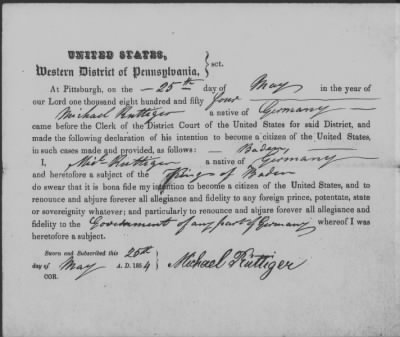 UNITED STATES,
Western District of Pennsylvania, } sct.
At Pittsburgh, on the 25th day of May in the year of
our Lord one thousand eight hundred and fifty four
Michael Rüttiger a native of Germany
came before the Clerk of the District Court of the United States for said District, and
made the following declaration of his intention to become a citizen of the United States,
in such cases made and provided, as follows: Baden
I, Michl Ruttiger a native of Germany
and heretofore a subject of the King of Baden
do swear that it is bona fide my intention to become a citizen of the United States, and to
renounce and abjure forever all allegiance and fidelity to any foreign prince, potentate, state
or sovereignty whatever; and particularly to renounce and abjure forever all allegiance and
fidelity to the Government of any part of Germany whereof I was
heretofore a subject.
Sworn and Subscribed this 25th
day of May A. D. 1854 Michael Rüttiger
COR.